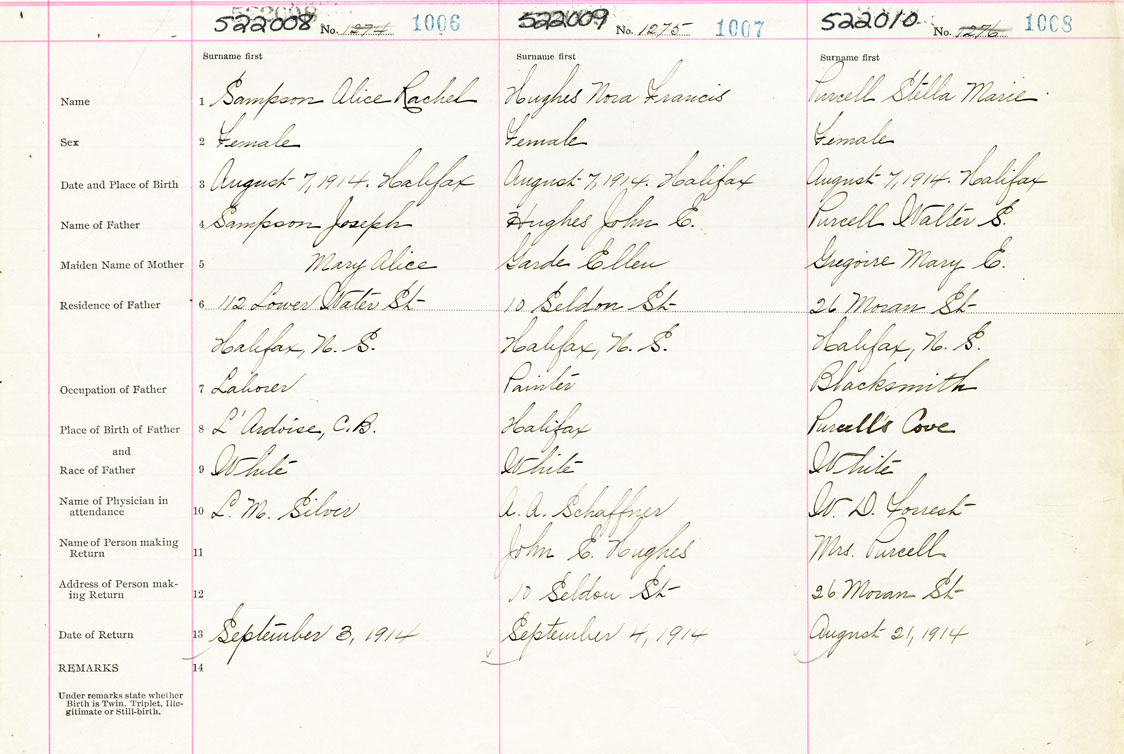 522008 No. 1274 1006 522009 No. 1275 1007 522010 No. 1276 1008
Surname first Surname first Surname first
Name 1 Sampson Alice Rachel Hughes Nora Francis Purcell Stella Marie
Sex 2 Female Female Female
Date and Place of Birth 3 August 7, 1914. Halifax August 7, 1914. Halifax August 7, 1914. Halifax
Name of Father 4 Sampson Joseph Hughes John E. Purcell Walter S.
Maiden Name of Mother 5 Mary Alice Garde Ellen Gregoire Mary E.
Residence of Father 6 112 Lower Water St 10 Seldon St 26 Moran St
Halifax, N. S. Halifax, N. S. Halifax, N. S.
Occupation of Father 7 Laborer Painter Blacksmith
Place of Birth of Father 8 L'Ardoise, C.B. Halifax Purcell's Cove
and
Race of Father 9 White White White
Name of Physician in
attendance 10 L. M. Silver A. A. Schaffner W. D. Forrest
Name of Person making
Return 11 John E. Hughes Mrs. Purcell
Address of Person mak-
ing Return 12 10 Seldon St 26 Moran St
Date of Return 13 September 3, 1914 September 4, 1914 August 21, 1914
REMARKS 14
Under remarks state whether
Birth is Twin, Triplet, Ille-
gitimate or Still-birth.